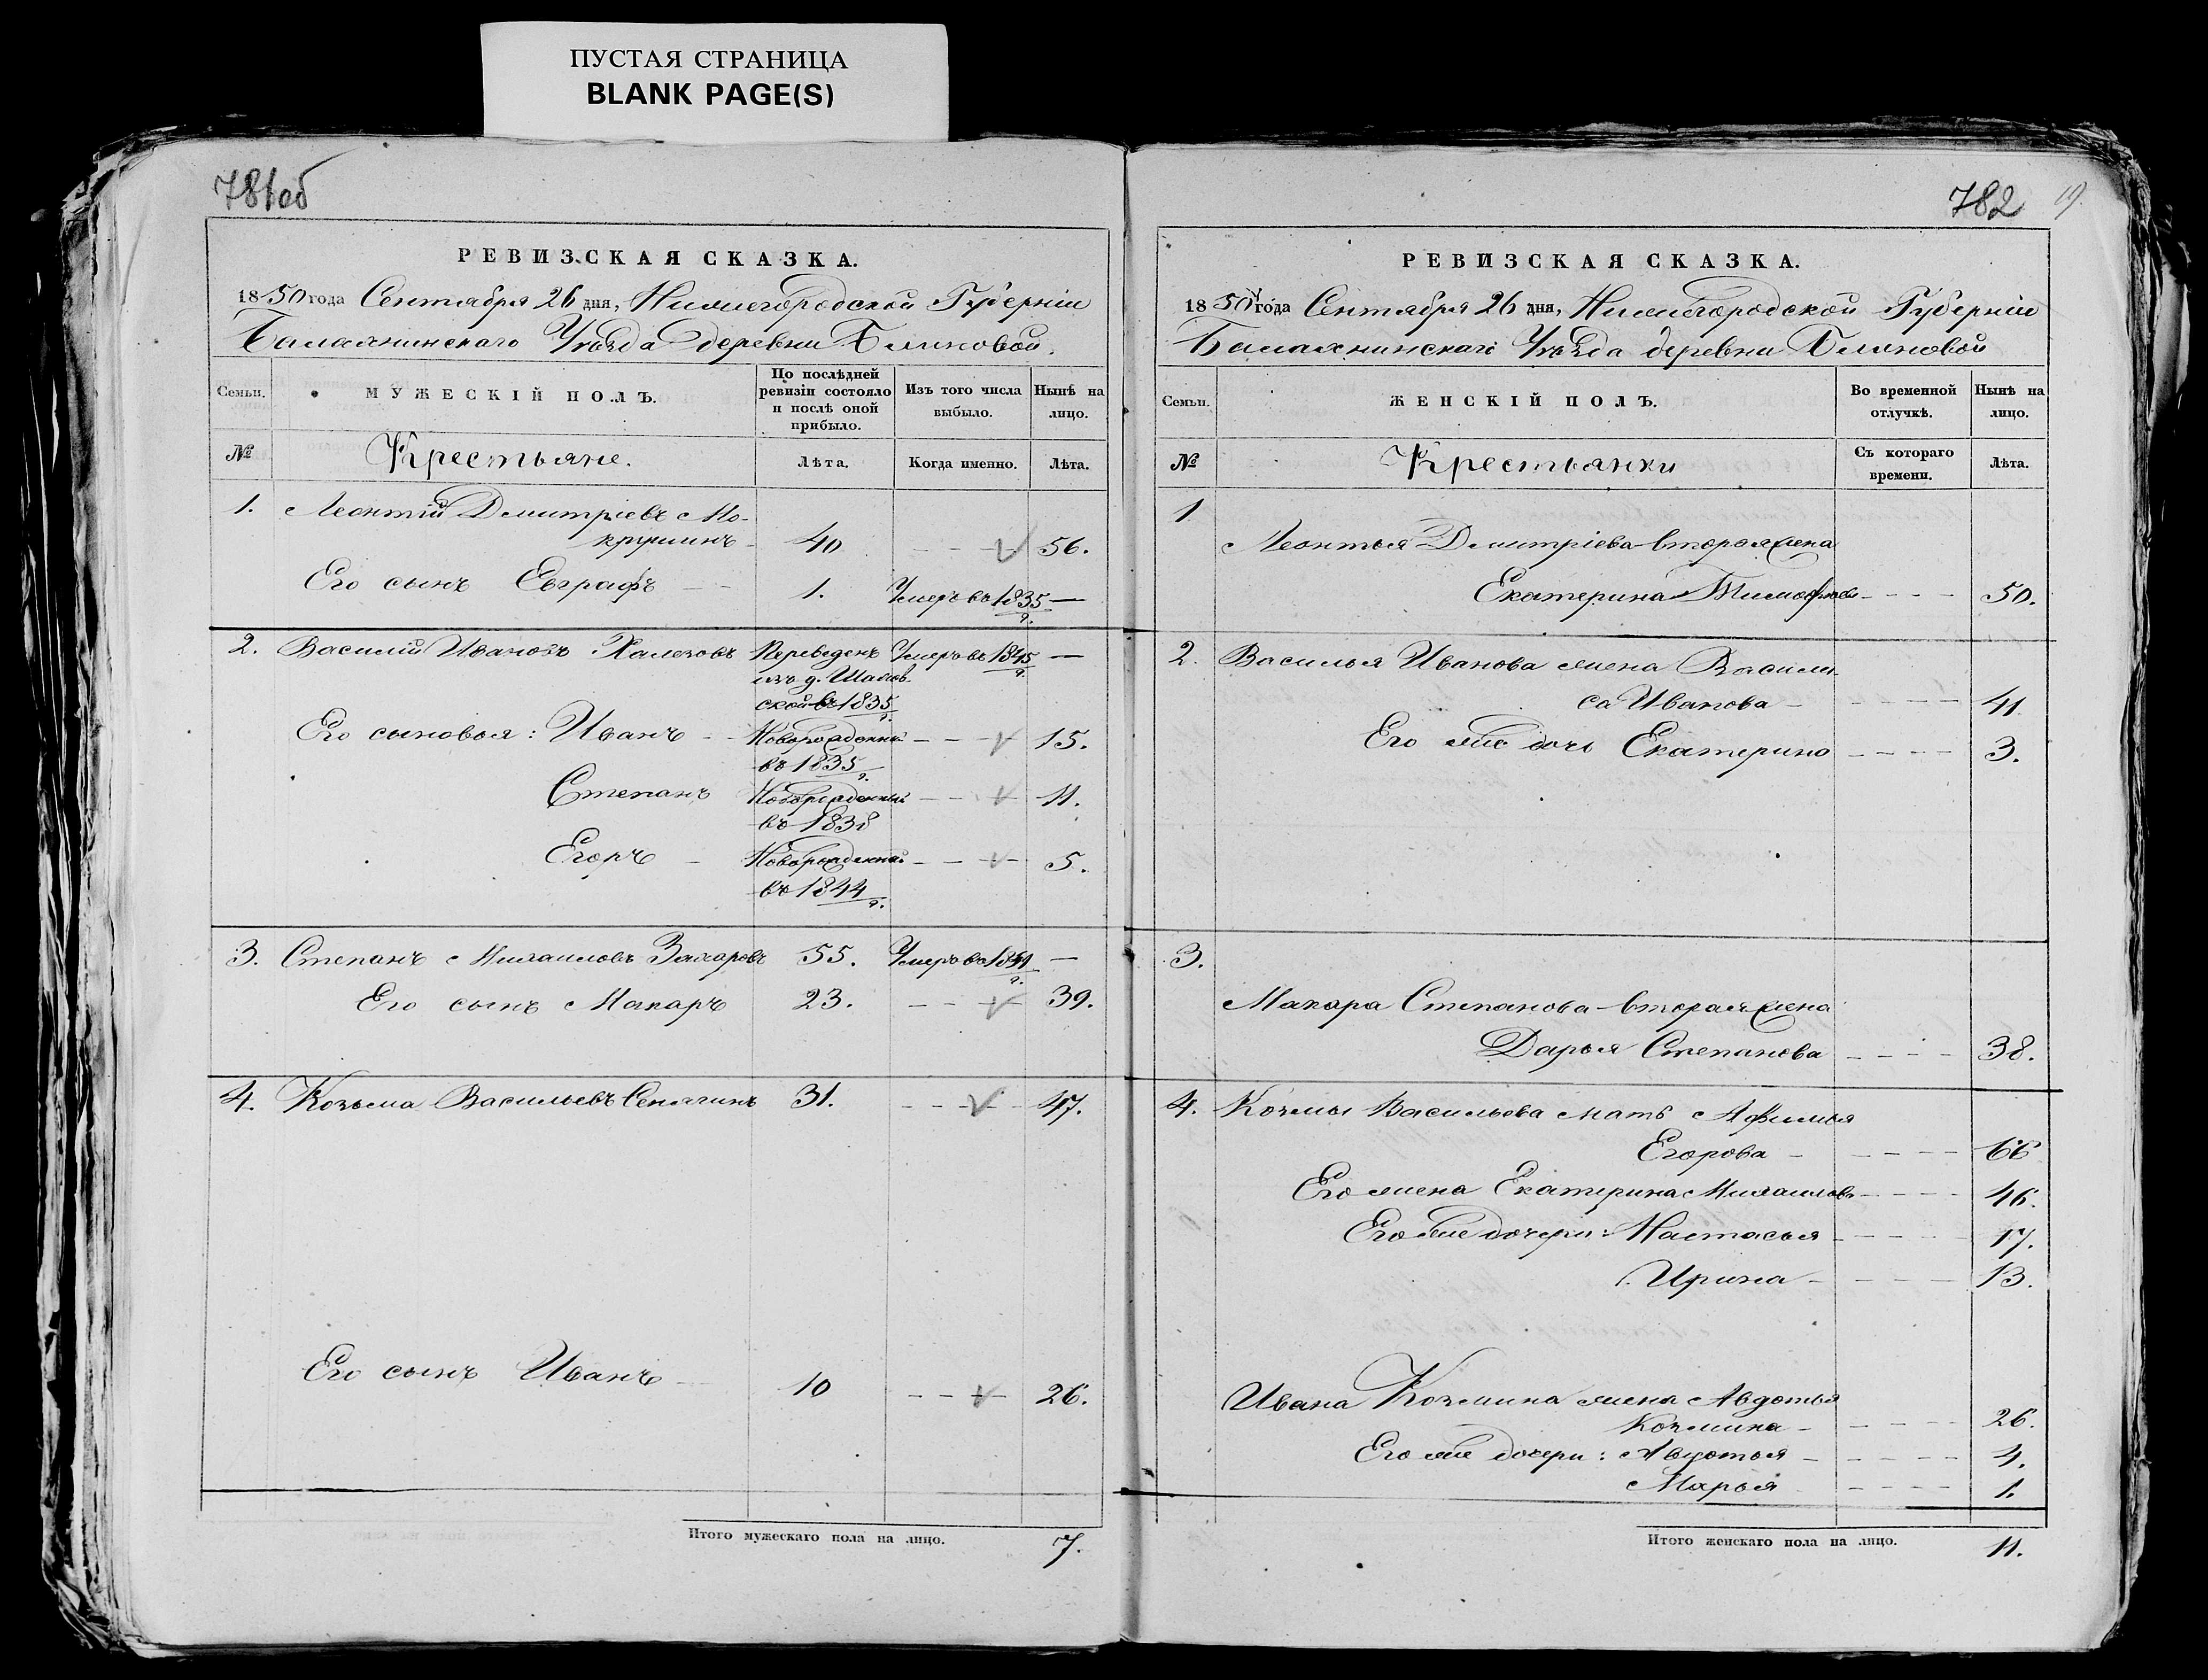 ПУСТАЯ СТРАНИЦА
BLANK PAGE(S)
781об
РЕВИЗСКАЯ СКАЗКА.
1850 года Сентября 26 дня, Нижегородской Губерніи
Балахнинскаго Уѣзда деревни Блиновой.
Семьи.
МУЖЕСКІЙ ПОЛЪ.
По послѣдней ревизіи состояло и послѣ оной прибыло.
Изъ того числа выбыло.
Нынѣ на лицо.
№
Крестьяне.
Лѣта.
Когда именно.
Лѣта.
1. Леонтій Дмитріевъ Мо-
крушинъ 40 56.
Его сынъ Евграфъ 1. Умеръ въ 1835 г. —
2. Василій Ивановъ Халезовъ Переведенъ Умеръ въ 1845 г. —
изъ д. Шалов-
ской въ 1835 г.
Его сыновья: Иванъ Новорожденный 15.
въ 1835 г.
Степанъ Новорожденный 11.
въ 1838
Егоръ Новорожденный 5.
въ 1844 г.
3. Степанъ Михаиловъ Захаровъ 55. Умеръ въ г. —
Его сынъ Макаръ 23. 39.
4. Козьма Васильевъ Сенягинъ 31. 47.
Его сынъ Иванъ 10 26.
Итого мужескаго пола на лицо. 7.
782
19
РЕВИЗСКАЯ СКАЗКА.
1850 года Сентября 26 дня, Нижегородской Губерніи
Балахнинскаго Уѣзда деревни Блиновой
Семьи.
ЖЕНСКІЙ ПОЛЪ.
Во временной отлучкѣ.
Нынѣ на лицо.
№
Крестьянки
Съ котораго времени.
Лѣта.
1
Леонтья Дмитріева вторая жена
Екатерина Тимофѣева 50.
2. Василья Иванова жена Васили-
са Иванова 41
Его же дочь Екатерина 3.
3.
Макара Степанова вторая жена
Дарья Степанова 38.
4. Козмы Васильева мать Афимья
Егорова 66
Его жена Екатерина Михаилова 46.
Его же дочери: Настасья 17.
Ирина 13.
Ивана Козмина жена Авдотья
Козмина 26.
Его же дочери: Авдотья 4.
Марья 1.
Итого женскаго пола на лицо. 11.